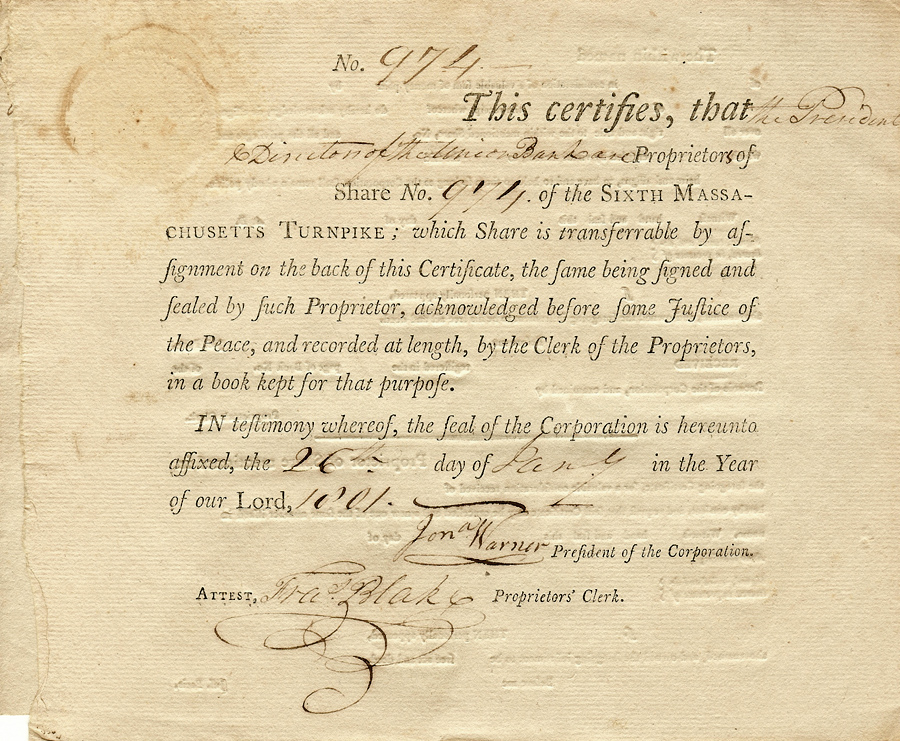 No. 974
This certifies, that the President
& Directors of the Union Bank are Proprietors of
Share No. 974. of the SIXTH MASSA-
CHUSETTS TURNPIKE; which Share is transferrable by aſ-
ſignment on the back of this Certificate, the ſame being ſigned and
ſealed by ſuch Proprietor, acknowledged before ſome Juſtice of
the Peace, and recorded at length, by the Clerk of the Proprietors,
in a book kept for that purpoſe.
IN teſtimony whereof, the ſeal of the Corporation is hereunto
affixed, the 26th day of Jany in the Year
of our Lord, 1801.
Jona Warner Preſident of the Corporation.
ATTEST, Fras Blake Proprietors' Clerk.